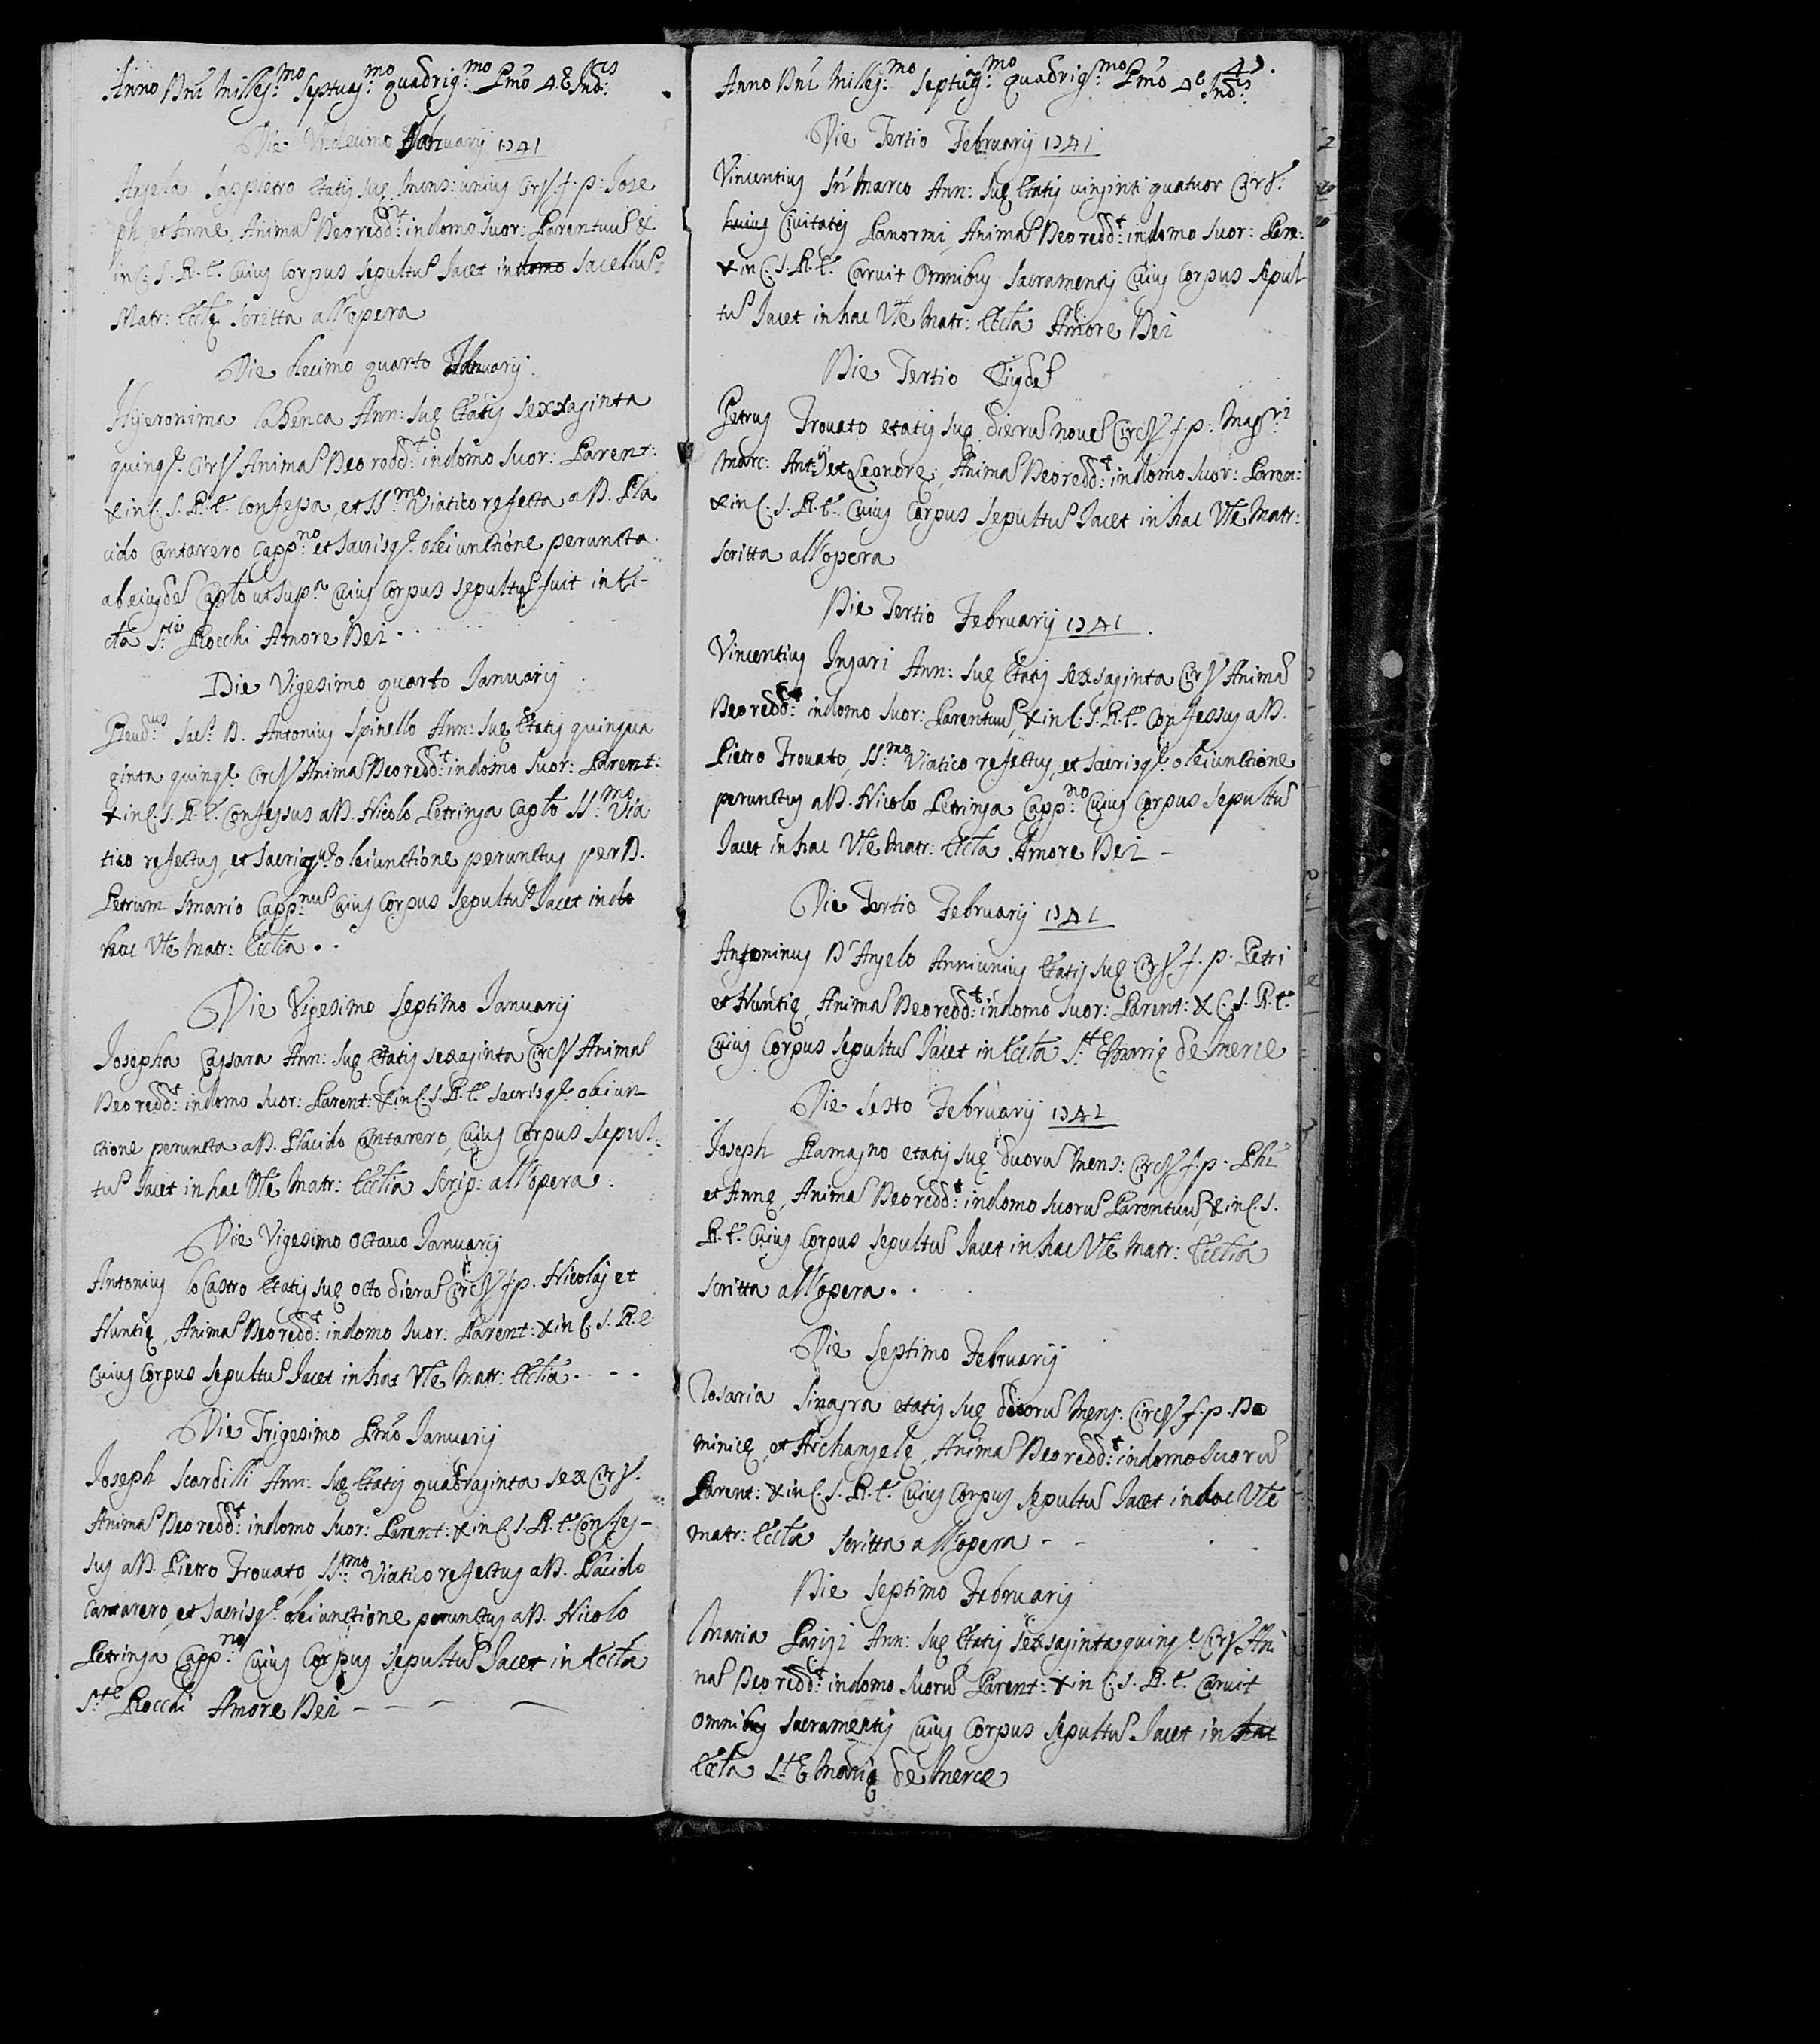 Anno Dni Milles:mo Septuag:mo quadrig:mo Pmo 4.æ Ind:is
Die Undecimo Januarij 1741
Angela Sappietro Etatis suę Mens: unius Circ. f. p: Jose
ph, et Annę, Anima Deo redd:t in domo suor: Parentuu &
in C. S. R. E. Cuius Corpus sepultu Jacet in domo Sacellu
Matr: Eccle scritta all'opera
Die decimo quarto Januarij.
Hyeronima la Benca Ann: suę Etatis sexxaginta
quinq. Circ. Anima Deo redd:t in domo suor: Parent:
& in C. S. R. E. Confessa, et SS:mo Viatico refecta a D. Pla
cido Cantarero Capp:no et sacrisq. olei unctione peruncta
ab eiusde Capto ut sup.a Cuius Corpus sepultu fuit in Ec-
cta S.ti Rocchi Amore Dei.
Die Vigesimo quarto Januarij
Reud:us Sac. D. Antonius Spinello Ann: suę Etatis quinqua
ginta quinq. Circ. Anima Deo redd:t in domo suor: Parent:
& in C. S. R. E. Confessus a D. Nicolo Petringa Capto SS:mo Via
tico refectus, et sacrisq. olei unctione perunctus per D.
Petrum Smario Capp:nus Cuius Corpus sepultu Jacet in do
hac Vte Matr: Ecclia.
Die Vigesimo Septimo Januarij
Josepha Caysara Ann: suę Etatis sexaginta Circ. Anima
Deo redd:t in domo suor: Parent: & in C. S. R. E. sacrisq. olei un
ctione peruncta a D. Placido Cantarero, Cuius Corpus sepul-
tu Jacet in hac Vte Matr: Ecclia Scrip: all'opera.
Die Vigesimo Octauo Januarij
Antonius lo Castro Etatis suę octo dieru Circ. f. p. Nicolaj et
Nuntię, Anima Deo redd:t in domo suor: Parent: & in C. S. R. E.
Cuius Corpus sepultu Jacet in hac Vte Matr: Ecclia. . - -
Die Trigesimo Pmo Januarij
Joseph Scardilli Ann: suę Etatis quadraginta sex Circ.
Anima Deo redd:t in domo suor: Parent: & in C. S. R. E. Confes-
sus a D. Pietro Trouato, SS:mo Viatico refectus a D. Placido
Cantarero, et sacrisq. olei unctione perunctus a D. Nicolo
Petringa Capp:no Cuius Corpus sepultu Jacet in Eccta
S.ti Rocchi Amore Dei - - - -
Anno Dni Milles:mo Septuag:mo quadrig:mo Pmo 4.æ Ind:is
Die Tertio Februarij 1741
Vincentius Sn Marco Ann: suę Etatis uinginti quatuor Circ.
huius Ciuitatis Panormi, Anima Deo redd:t in domo suor: Pare:
& in C. S. R. E. Caruit Omnibus Sacramentis Cuius Corpus sepul
tu Jacet in hac Vte Matr: Eccta Amore Dei
Die Tertio Eiusde
Petrus Trouato etatis suę dieru noue Circ. f. p: Mag.ri
Marc: Ant:ij et Leonorę, Anima Deo redd:t in domo suor: Paren:
& in C. S. R. E. Cuius Corpus sepultu Jacet in hac Vte Matr:
scritta all'opera
Die Tertio Februarij 1741.
Vincentius Ingari Ann: suę Etatis sexsaginta Circ. Anima
Deo redd:t in domo suor: Parentuu, & in C. S. R. E. Confessus a D.
Pietro Trouato, SS:mo Viatico refectus, et sacrisq. olei unctione
perunctus a D. Nicolo Petringa Capp:no Cuius Corpus sepultu
Jacet in hac Vte Matr: Eccta Amore Dei -
Die Tertio Februarij 1741
Antoninus D'Angelo Anni unius Etatis suę Circ. f. p. Petri
et Nuntię, Anima Deo redd:t in domo suor: Parent: & C. S. R. E.
Cuius Corpus sepultu Jacet in Eccta S.tę Marię de Merce
Die Sesto Februarij 1741
Joseph Ramagno etatis suę duoru Mens: Circ. f. p. Phi
et Annę, Anima Deo redd:t in domo suoru Parentuu, & in C. S.
R. E. Cuius Corpus sepultu Jacet in hac Vte Matr: Ecclia
scritta all'opera. .
Die Septimo Februarij
Rosaria Sinagra etatis suę duoru Mens. Circ. f. p. Do
minicę, et Archangelę, Anima Deo redd:t in domo suoru
Parent: & in C. S. R. E. Cuius Corpus sepultu Jacet in hac Vte
Matr: Eccta scritta all'opera - -
Die Septimo Februarij
Maria Parisi Ann: suę Etatis sexsaginta quinq. Circ. Ani
ma Deo redd:t in domo suoru Parent: & in C. S. R. E. Caruit
Omnibus Sacramentis Cuius Corpus sepultu Jacet in hac
Eccta S.tę Marię de Merce